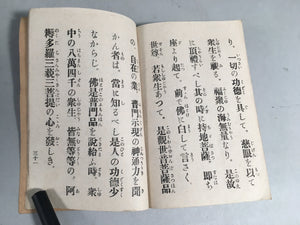 り、一切の功德を具して、慈眼を以て
衆生を視る。福聚の海無量なり、是故
に頂禮すべし。其の時に持地菩薩、即ち
座より起て、前で佛に白して言さく、
世尊、若衆生あつて、是觀世音菩薩品
の、自在の業、普門示現の神通力を聞
かん者は、當に知るべし是人の功德少
なからじ。佛是普門品を説給ふ時、衆
中の八萬四千の衆生、皆無等等の、阿
耨多羅三藐三菩提の心を發しき。
三十一